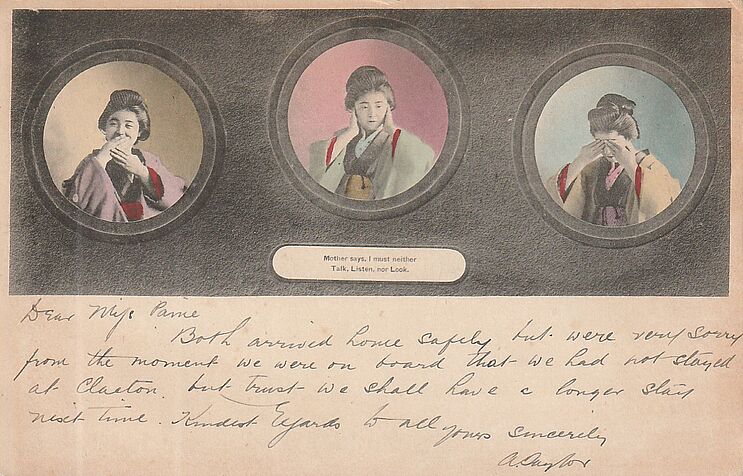 Mother says, I must neither
Talk, Listen, nor Look.
Dear Miss Paine
Both arrived home safely, but were very sorry
from the moment we were on board that we had not stayed
at Clacton. but trust we shall have a longer stay
next time. Kindest Regards to all
yours sincerely